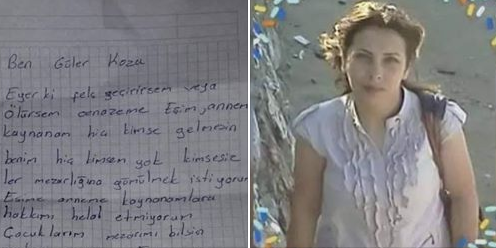 Ben Güler Koza
Eğer ki felç geçirirsem veya
Ölürsem cenazeme Eşim, annem
kaynanam hiç kimse gelmesin
benim hiç kimsem yok kimsesiz
ler mezarlığına gömülmek istiyorum
Eşime anneme kaynanamlara
hakkımı helal etmiyorum
Çocuklarım mezarımı bilsin